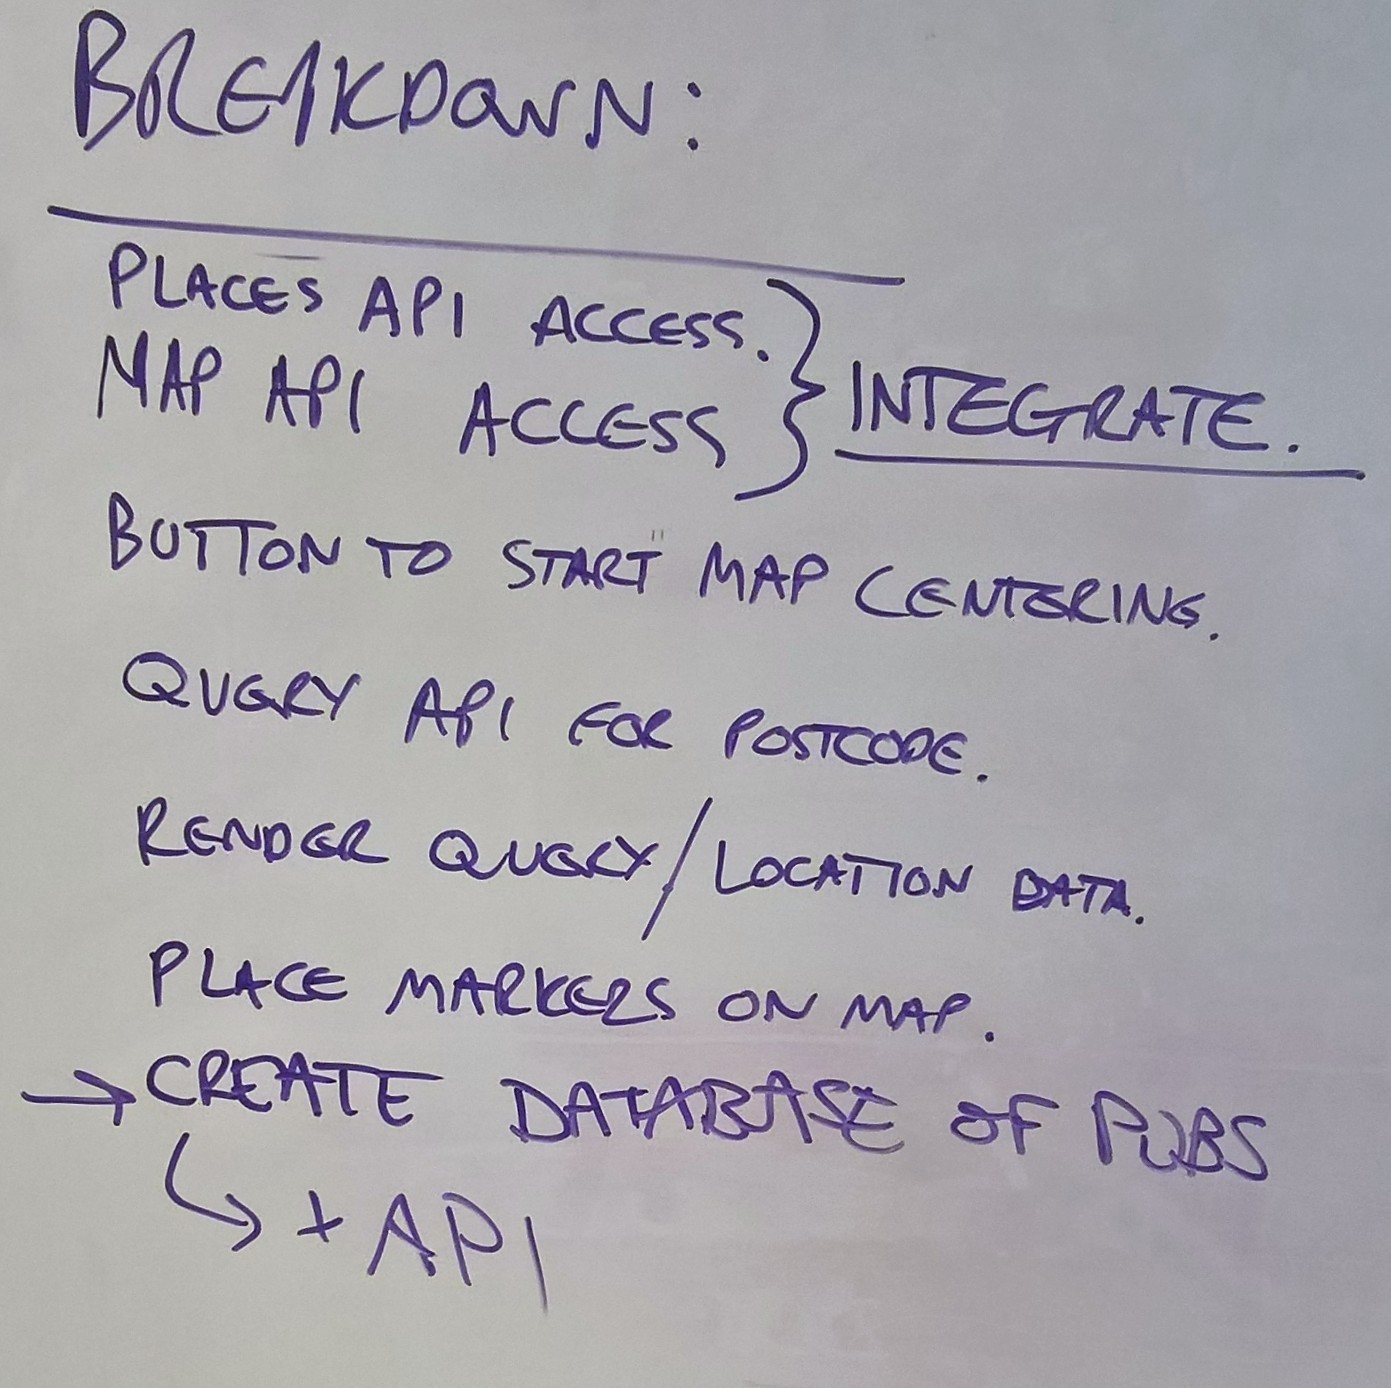 BREAKDOWN:
PLACES API ACCESS.
MAP API ACCESS
INTEGRATE.
BUTTON TO START MAP CENTERING.
QUERY API FOR POSTCODE.
RENDER QUERY/LOCATION DATA.
PLACE MARKERS ON MAP.
→ CREATE DATABASE OF PUBS
↳ + API